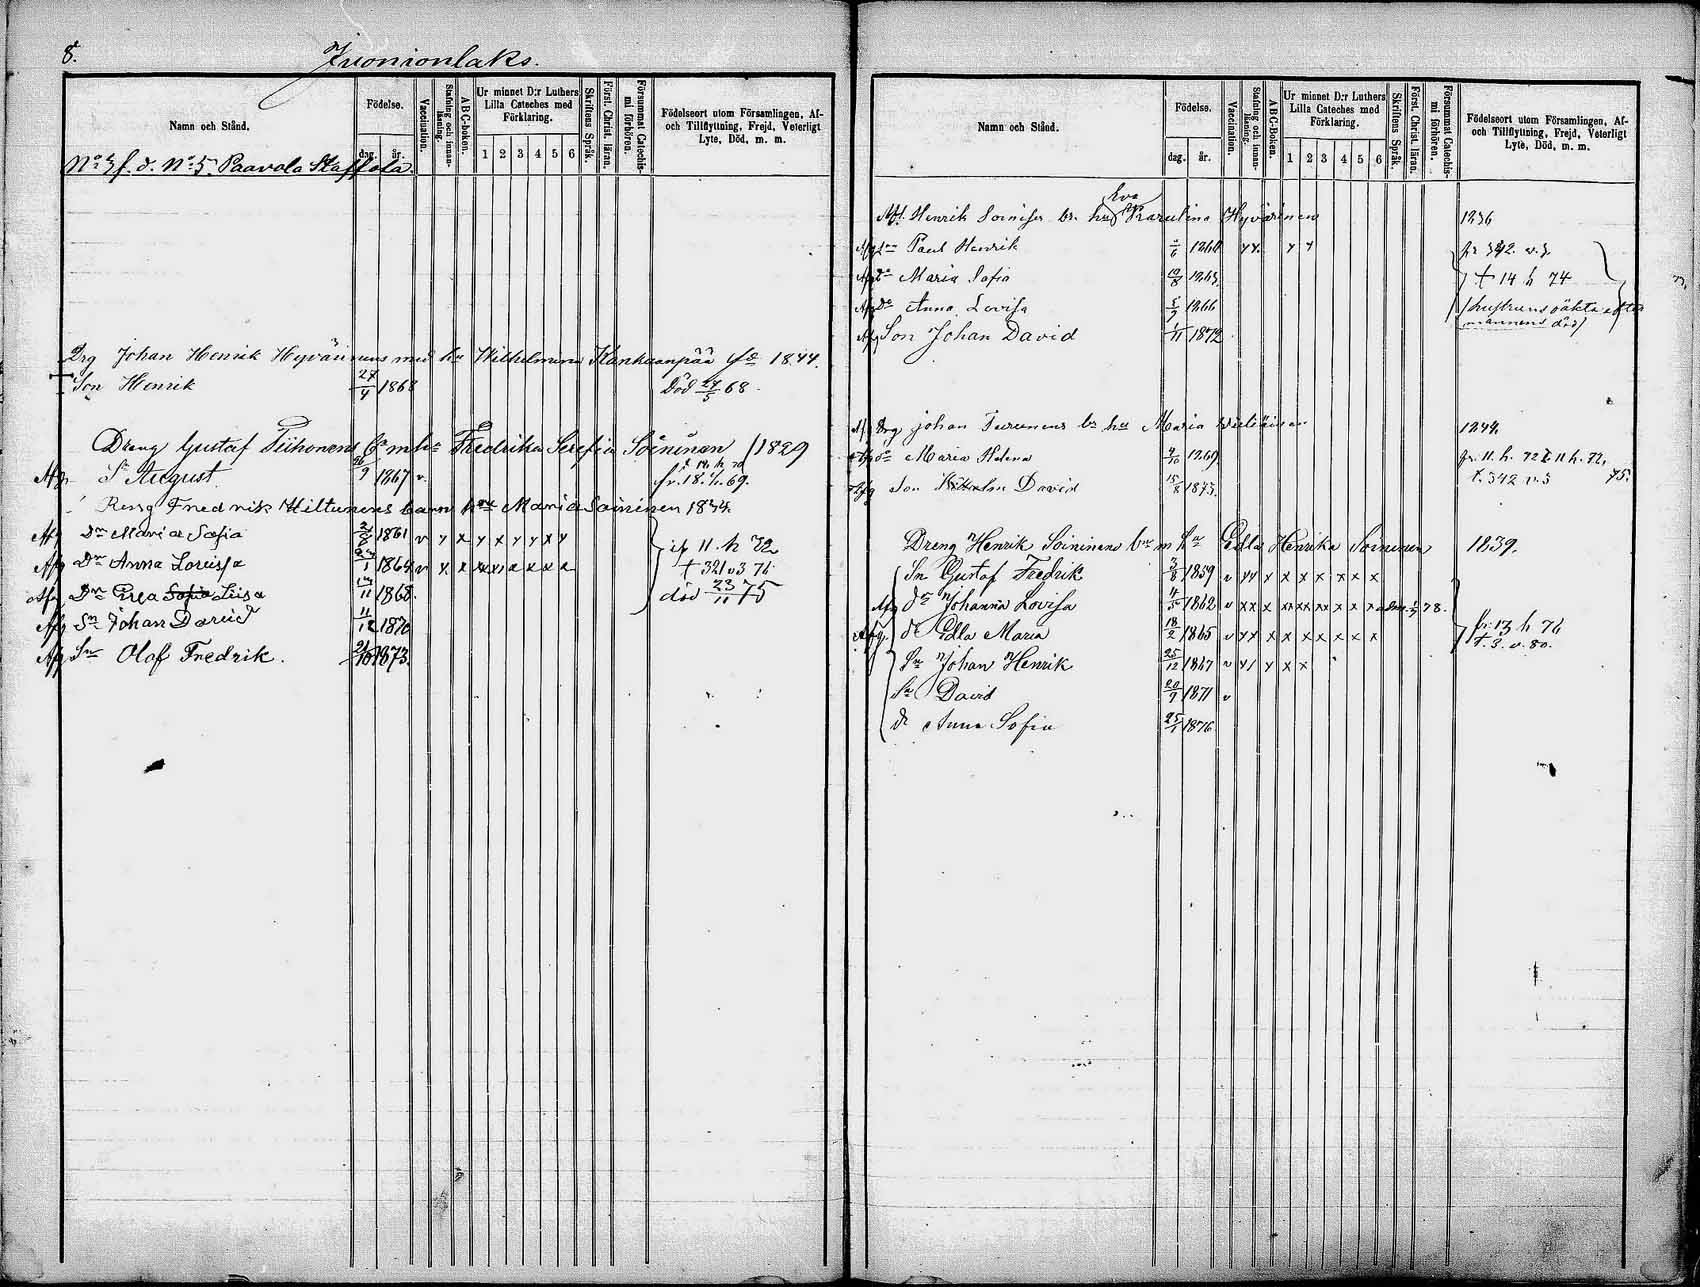 8.
Namn och Stånd.
Födelse.
dag. år.
Vaccination.
Stafning och innanläsning.
ABC-boken.
Ur minnet D:r Luthers Lilla Cateches med Förklaring.
1 2 3 4 5 6
Skriftens Språk.
Först. Christ. läran.
Försummat Catechismi förhören.
Födelseort utom Församlingen, Af- och Tillflyttning, Frejd, Veterligt Lyte, Död, m. m.
Paavola Staffola.
Drg Johan Henrik Hyvärinens med hu Wilhelmina Kankaanpää 1844.
Son Henrik 27/4 1868 Död 27/5 68.
Dreng Gustaf Tiihonens Fredrika Serefia Soininen 1829
Afg Sn August 1867 v fr. 69.
Fredrik Hiltunens barn Maria Soininen
Afg Dr Maria Sofia 1861 v y x y x y y x y
Afg Dr Anna Lovisa 1864 v x x
if 11. h 72
† 321 v 76
Afg Dr Sofia Liisa 1868. död 23/11 75
Afg Sn Johan David 11/12 1870
Afg Sn Olof Fredrik. 1873.
Namn och Stånd.
Födelse.
dag. år.
Vaccination.
Stafning och innanläsning.
ABC-Boken.
Ur minnet D:r Luthers Lilla Cateches med Förklaring.
1 2 3 4 5 6
Skriftens Språk.
Först. Christ. läran.
Försummat Catechismi förhören.
Födelseort utom Församlingen, Af- och Tillflyttning, Frejd, Veterligt Lyte, Död, m. m.
Eva
Henrik Soinises br. hu Karulina Hyvärinen 1836
Paul Henrik 1860 y y. y y
Maria Sofia 10/8 1863. † 14 h 74
Anna Lovisa 1866
mannens död)
Son Johan David 1/11 1872
Drg Johan Turunens br hu Maria 1844
Maria Helena 4/10 1869 fr. 11. h. 72 11 h. 72.
Afg Son David 15/8 1873. † 342 v. 75.
Dreng Henrik Soininens br m hu Edla Henrika Soininen 1839.
Sn Gustaf Fredrik 3/8 1859 v y y x x x x x x x
Afg dr Johanna Lovisa 1862 v x x x 78.
Afg. dr Edla Maria 18/2 1865 v y x x x x x x x x
fr. 13 h 76
† 3. v. 80.
Sn Johan Henrik 25/12 1867 v y / y x x
Sn David 20/9 1871 v
dr Anna Sofia 25/1 1876